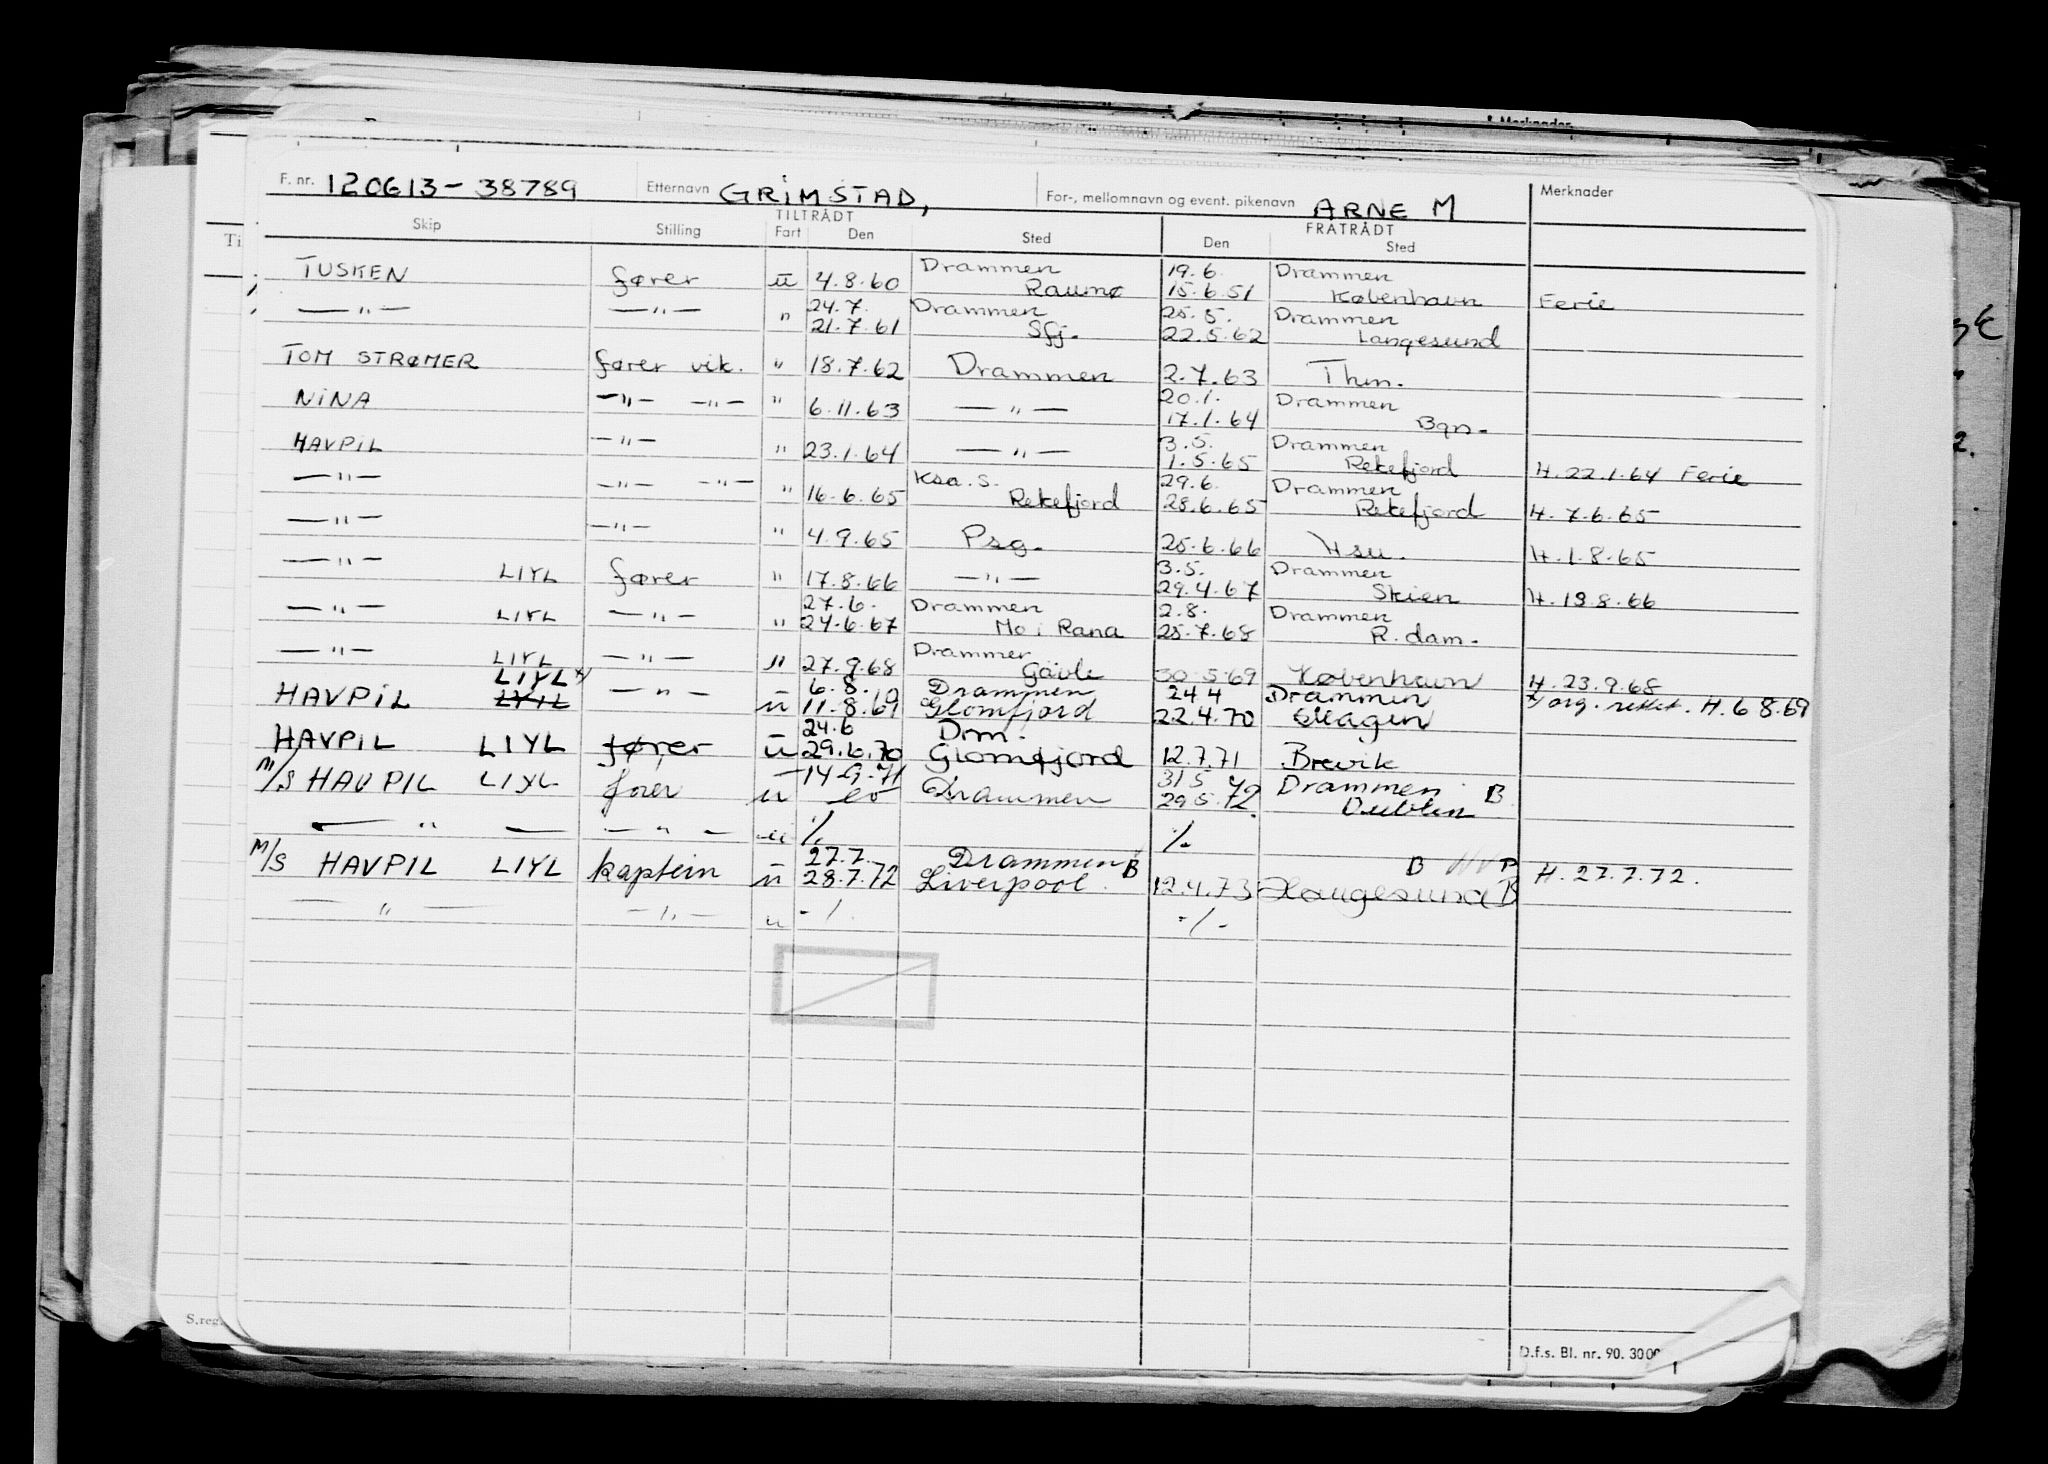 Merknader
F. nr. 120613-38789 Etternavn GRIMSTAD, For-, mellomnavn og event. pikenavn ARNE M Merknader
TILTRÅDT FRATRÅDT
Skip Stilling Fart Den Sted Den Sted
Drammen 19.6. Drammen
TUSKEN fører u 4.8.60 Raumo 15.6.51 København Ferie
24.7. Drammen 25.5. Drammen
—"— —"— " 21.7.61 Sfj. 22.5.62 Langesund
TOM STRØMER fører vik. " 18.7.62 Drammen 2.7.63 Thm.
20.1. Drammen
NINA —"— —"— " 6.11.63 —"— 17.1.64 Bgn.
3.5. Drammen
HAVPIL —"— " 23.1.64 —"— 1.5.65 Rekefjord H. 22.1.64 Ferie
Ksa. S. 29.6. Drammen
—"— —"— —"— " 16.6.65 Rekefjord 28.6.65 Rekefjord H. 7.6.65
—"— —"— " 4.9.65 Psg. 25.6.66 Hsu. H. 1.8.65
3.5. Drammen
—"— LIYL fører " 17.8.66 —"— 29.4.67 Skien H. 13.8.66
27.6. Drammen 2.8. Drammen
—"— LIYL —"— " 24.6.67 Mo i Rana 25.7.68 R.dam.
Drammen
—"— LIYL —"— " 27.9.68 Gävle 30.5.69 København H. 23.9.68
LIYL x) 6.8. Drammen 24.4 Drammen
HAVPIL LYIL —"— u 11.8.69 Glomfjord 22.4.70 Skagen x) org. rettet. H. 6 8.69
24.6 Drm.
HAVPIL LIYL fører u 29.6.70 Glomfjord 12.7.71 Brevik
14.9.71 31 5 72 Drammen B
M/S HAVPIL LIYL fører u Drammen 29.5.72. Dublin
— " — — " — u ./. ./.
27.7. Drammen B B
M/S HAVPIL LIYL kaptein u 28.7.72 Liverpool 12.4.73 Haugesund B H. 27.7.72.
— " — —"— u ./. ./.
S.reg.
D.f.s. Bl. nr. 90. 3000